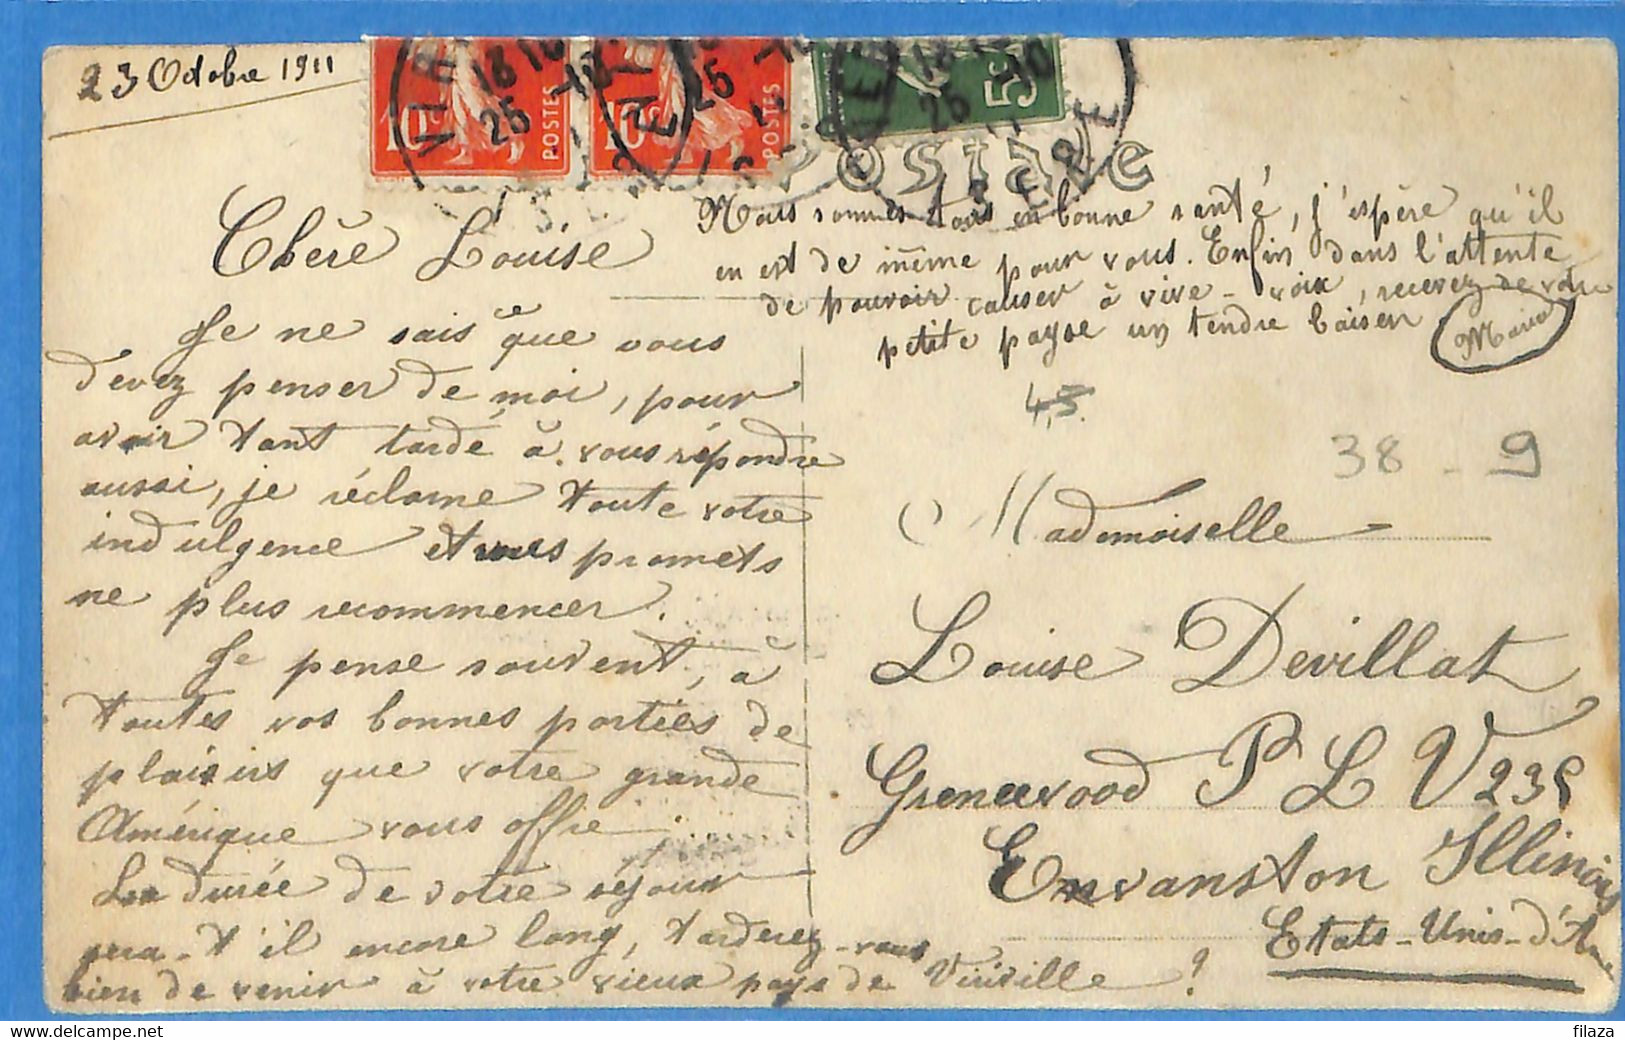 23 Octobre 1911
10c POSTES
10c POSTES
5c
Postale
Chère Louise
Je ne sais ce que vous
devez penser de moi, pour
avoir tant tardé à vous répondre
aussi, je réclame toute votre
indulgence et vous promets
ne plus recommencer.
Je pense souvent, à
toutes vos bonnes parties de
plaisirs que votre grande
Amérique vous offre.
La durée de votre séjour
sera-t'il encore long, tarderez-vous
bien de venir à votre vieux pays de Viriville ?
Nous sommes tous en bonne santé, j'espère qu'il
en est de même pour vous. Enfin dans l'attente
de pouvoir causer à vive-voix, recevez de votre
petite payse un tendre baiser
Maria
4,5.
38 - 9
Mademoiselle
Louise Devillat
Greneewood P L V 235
Envanston Illinois
Etats-Unis-d'Ame
filaza